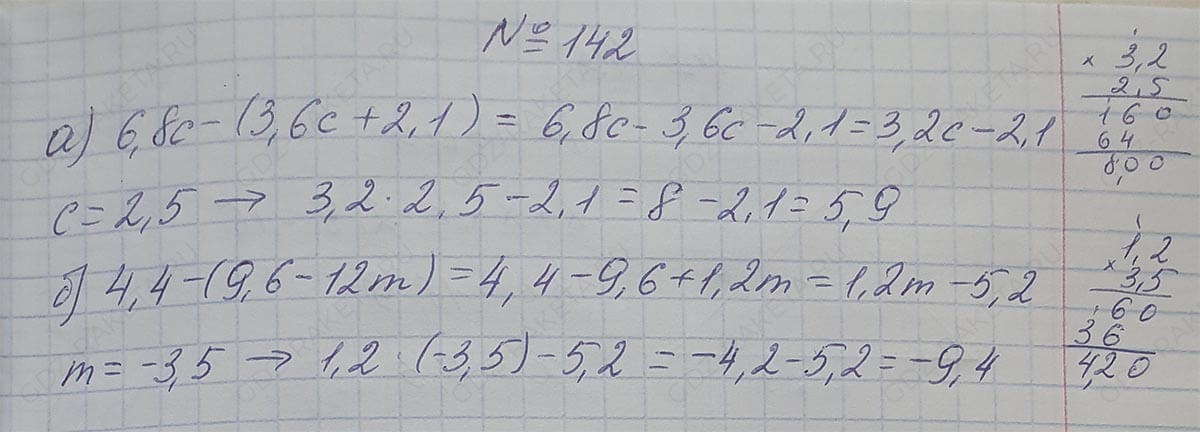 № 142
а) 6,8c - (3,6c + 2,1) = 6,8c - 3,6c - 2,1 = 3,2c - 2,1
c = 2,5 → 3,2 · 2,5 - 2,1 = 8 - 2,1 = 5,9
б) 4,4 - (9,6 - 12m) = 4,4 - 9,6 + 1,2m = 1,2m - 5,2
m = -3,5 → 1,2 · (-3,5) - 5,2 = -4,2 - 5,2 = -9,4
1
× 3,2
2,5
160
64
8,00
1
× 1,2
3,5
60
36
4,20
GDZ-RAKETA.RU